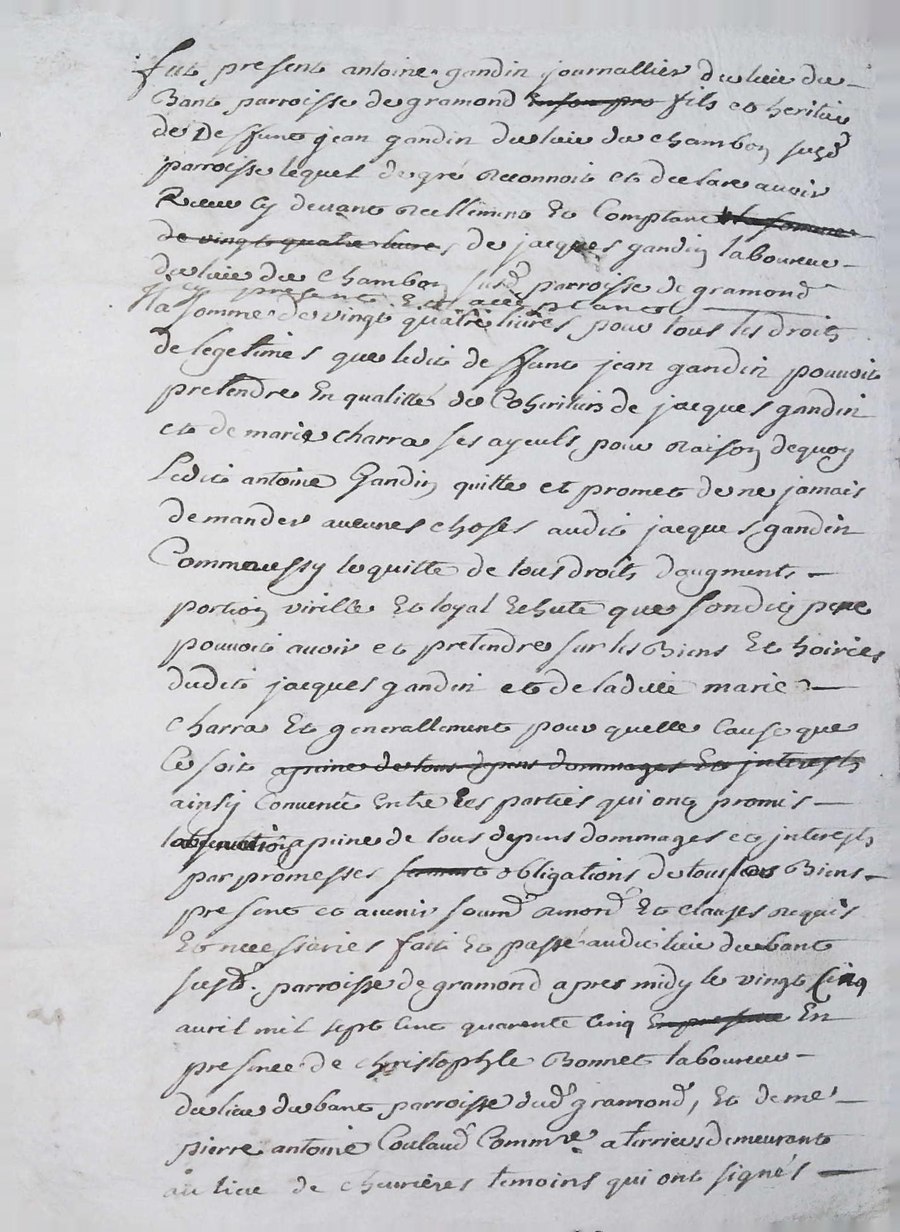 fut present antoine gandin journallier du lieu du
Bant parroisse de gramond en son pro fils et heritier
de Deffunt jean gandin du lieu du chambon susd
parroisse lequel de gré reconnoit et declare avoir
Receu cy devant reellement Et Comptant la somme
de vingt quatre livres de jacques gandin laboureur
du lieu du chambon susd parroisse de gramond
cy present Et acceptant
la somme de vingt quatre livres pour tous les droits
de legetimes que ledit deffunt jean gandin pouvoit
pretendre En qualitté de Coheritiers de jacques gandin
et de marie charra ses ayeuls pour raison dequoy
Ledit antoine Gandin quitte et promet de ne jamais
demander aucunes choses audit jacques gandin
Comme aussy le quitte de tous droits daugments
portion virille Et loyal Echute que sondit pere
pouvoit avoir et pretendre sur les Biens Et hoiries
dudit jacques gandin et de ladite marie
charra Et generallement pour quelle Cause que
Ce soit a peine de tous depens dommages Et interests
ainsy Convenu Entre les parties qui ont promis
lobservation a peine de tous depens dommages et interests
par promesses serment obligations de tous ses Biens
present et avenir soumd renond Et clauses requis
Et necessaires fait Et passé audit lieu du bant
susd. parroisse de gramond apres midy le vingt Cinq
avril mil sept Cent quarente Cinq En presence En
presence de christophle Bonnet laboureur
du lieu du bant parroisse dud gramond, Et de me
pierre antoine Coulaud Commre a terriers demeurant
au lieu de chevrières temoins qui ont signés